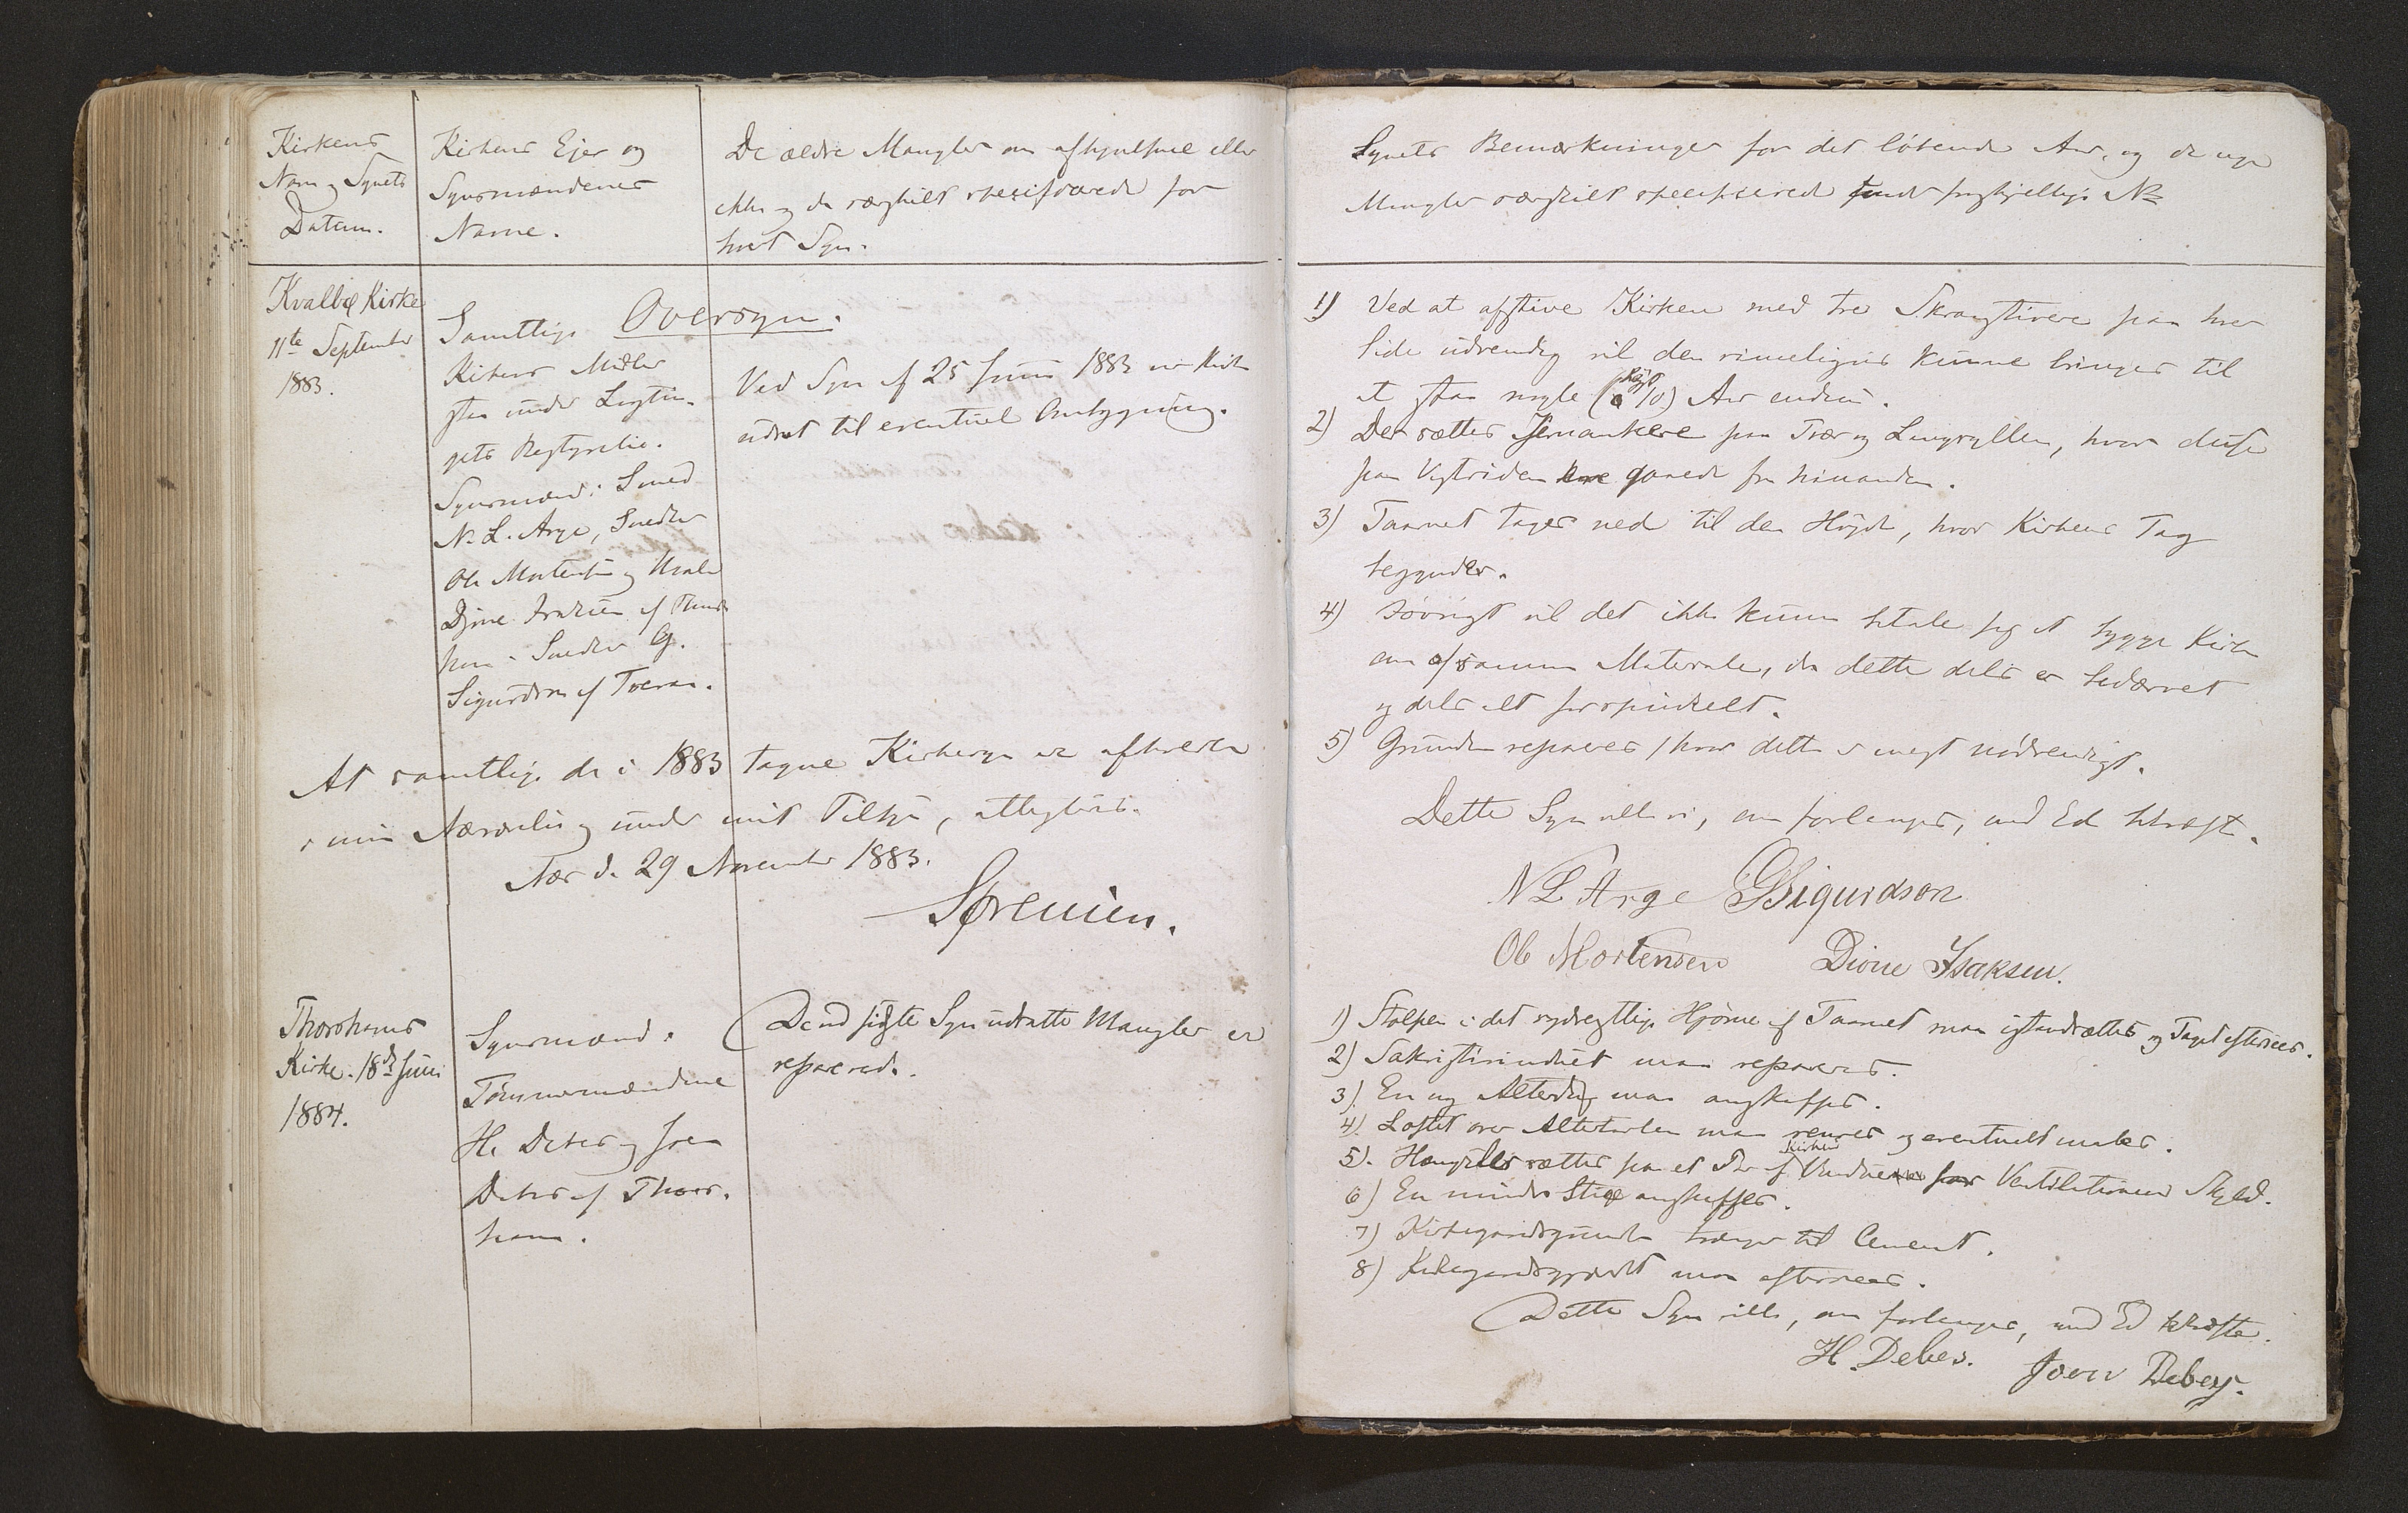 Kirkens
Navn og Synets
Datum.
Kirkens Ejer og
Synsmændenes
Navne.
De ældre Mangler om afhjulpne eller
ikke og da særskilt specificerede for
hvert Syn.
Kvalbø Kirke
11te September
1883.
Oversyn.
Samtlige
Kirkens Midler
staa under Lagtin-
gets Bestyrelse.
Synsmænd: Smed
N. L. Arge, Snedker
Ole Mortensen og
Djone Isaksen af Thors-
havn - Snedker G.
Sigurdson af Tveraa.
Ved Syn af 25 Juni 1883 er Kirken
udsat til eventuel Ombygning.
At samtlige de i 1883 tagne Kirkesyn ere afholdte
i min Nærværelse og under mit Tilsyn, attesteres.
Næs d. 29 November 1883.
Sørensen.
Thorshavns
Kirke. 18de Juni
1884.
Synsmænd:
Tømmermændene
H. Debes og Joen
Debes af Thors-
havn.
De ved sidste Syn udsatte Mangler er
reparerede.
Synets Bemærkninger for det løbende Aar, og de nye
Mangler særskilt specificerede under forskjellige No
1) Ved at afstive Kirken med tre Skraastivere paa hver
Side udvendig vil den rimeligvis kunne bringes til
at staa nogle (højst 10) Aar endnu.
2) Der sættes Jernankere paa Tvær og Langsyllen, hvor disse
paa Vestsiden ere gaaede fra hinanden.
3) Taarnet tages ned til den Højde, hvor Kirkens Tag
begynder.
4) Iøvrigt vil det ikke kunne betale sig at bygge Kirken
om af samme Materiale, da dette dels er bedærvet
og dels alt for spinkelt.
5) Grunden repareres, hvor dette er meget nødvendigt.
Dette Syn ville vi, om forlanges, med Ed bekræfte.
N L Arge GSigurdson
Ole Mortensen Dione Isaksen.
1) Stolpen i det sydvestlige Hjørne af Taarnet maa istandsættes og Taget efterseees.
2) Sakristivinduet maa repareres.
3). En ny Alterdug maa anskaffes.
4). Loftet over Altertavlen maa renses og eventuelt males.
5). Hængsler sættes paa et Par af Kirkens Vinduer for Ventilationens Skyld.
6) En mindre Stige anskaffes.
7) Kirkegaardsgrunden trænger til Cement.
8) Kirkegaardsgjærdet maa efterseees.
Dette Syn ville, om forlanges, med Ed bekræfte.
H. Debes. Joen Debes.